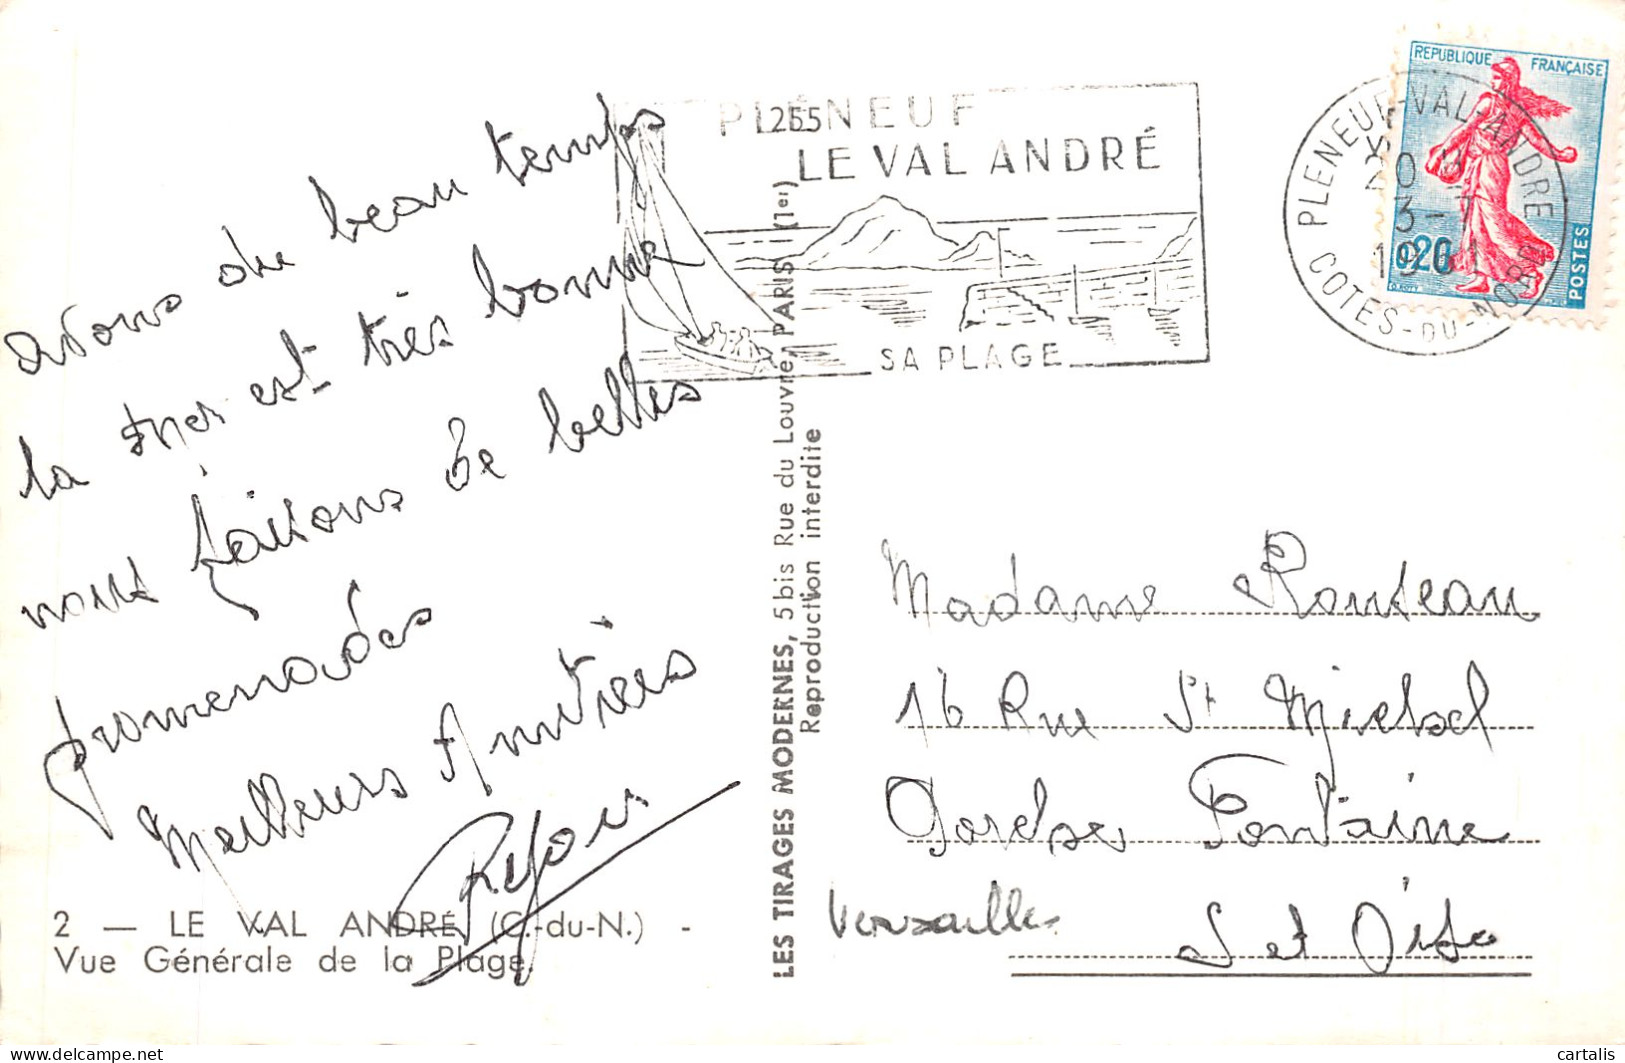 avons du beau temps
la mer est très bonne
nous faisons de belles
promenades
Meilleurs Amitiés
2 — LE VAL ANDRÉ (C.-du-N.) -
Vue Générale de la Plage
LES TIRAGES MODERNES, 5 bis Rue du Louvre, PARIS (1er)
Reproduction interdite
PLÉNEUF
L255
LE VAL ANDRÉ
SA PLAGE
PLENEUF-VAL-ANDRE
3-7
COTES-DU-NORD
REPUBLIQUE FRANÇAISE
0,20
POSTES
Madame Rouseau
16 Rue St Michel
Versailles
S et Oise
cartalis